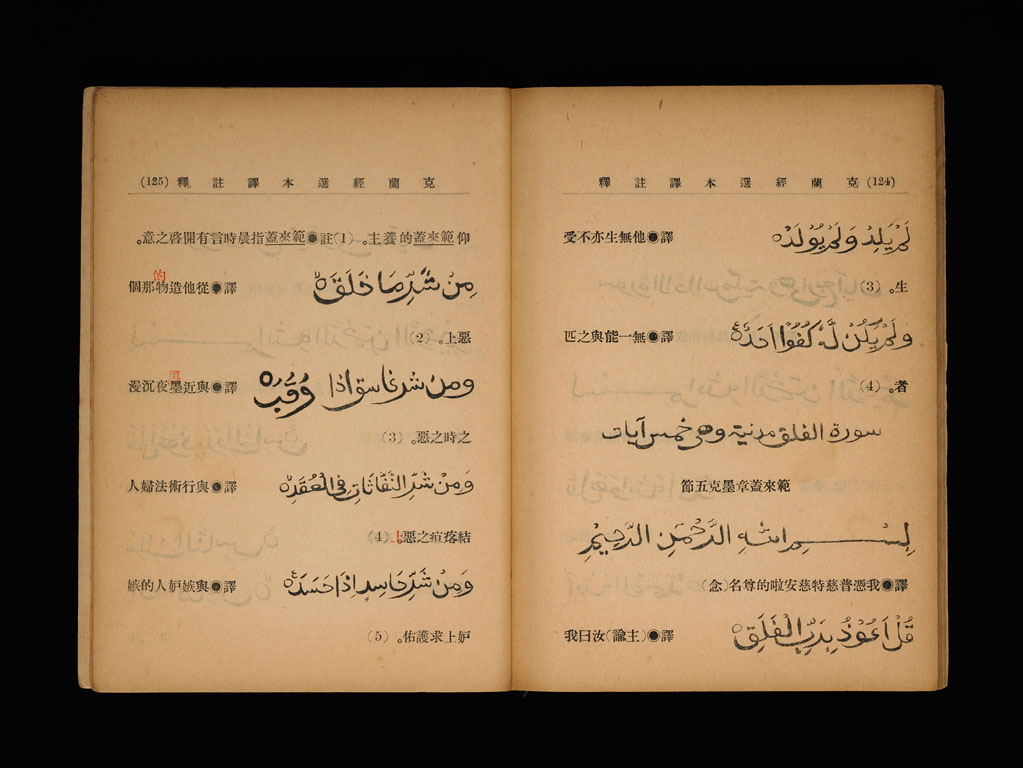 (124) 克蘭經選本譯註釋
لَمْ يَلِدْ وَلَمْ يُولَدْ 譯●他無生亦不受
生。(3)
وَلَمْ يَكُنْ لَّهُ كُفُوًا اَحَدٌ 譯●無一能與之匹
者。(4)
سورة الفلق مدنية وهي خمس آيات
範來蓋章墨克五節
بِسْمِ اللهِ الرَّحْمَنِ الرَّحِيْمِ
譯●我憑普慈特慈安啦的尊名(念)
قُلْ اَعُوْذُ بِرَبِّ الْفَلَقِ 譯●(主諭)汝曰我
克蘭經選本譯註釋 (125)
仰範來蓋的養主。(1)註●範來蓋指晨時言有開啓之意。
مِنْ شَرِّ مَا خَلَقَ 譯●從他造物的那個
惡上。(2)
وَمِنْ شَرِّ غَاسِقٍ اِذَا وَقَبَ 譯●與近墨夜沉漫
黑
之時之惡。(3)
وَمِنْ شَرِّ النَّفَّاثَاتِ فِي الْعُقَدِ 譯●與行術法婦人
結疙疸之惡上。(4)
وَمِنْ شَرِّ حَاسِدٍ اِذَا حَسَدَ 譯●與嫉妒人的嫉
妒上求護佑。(5)